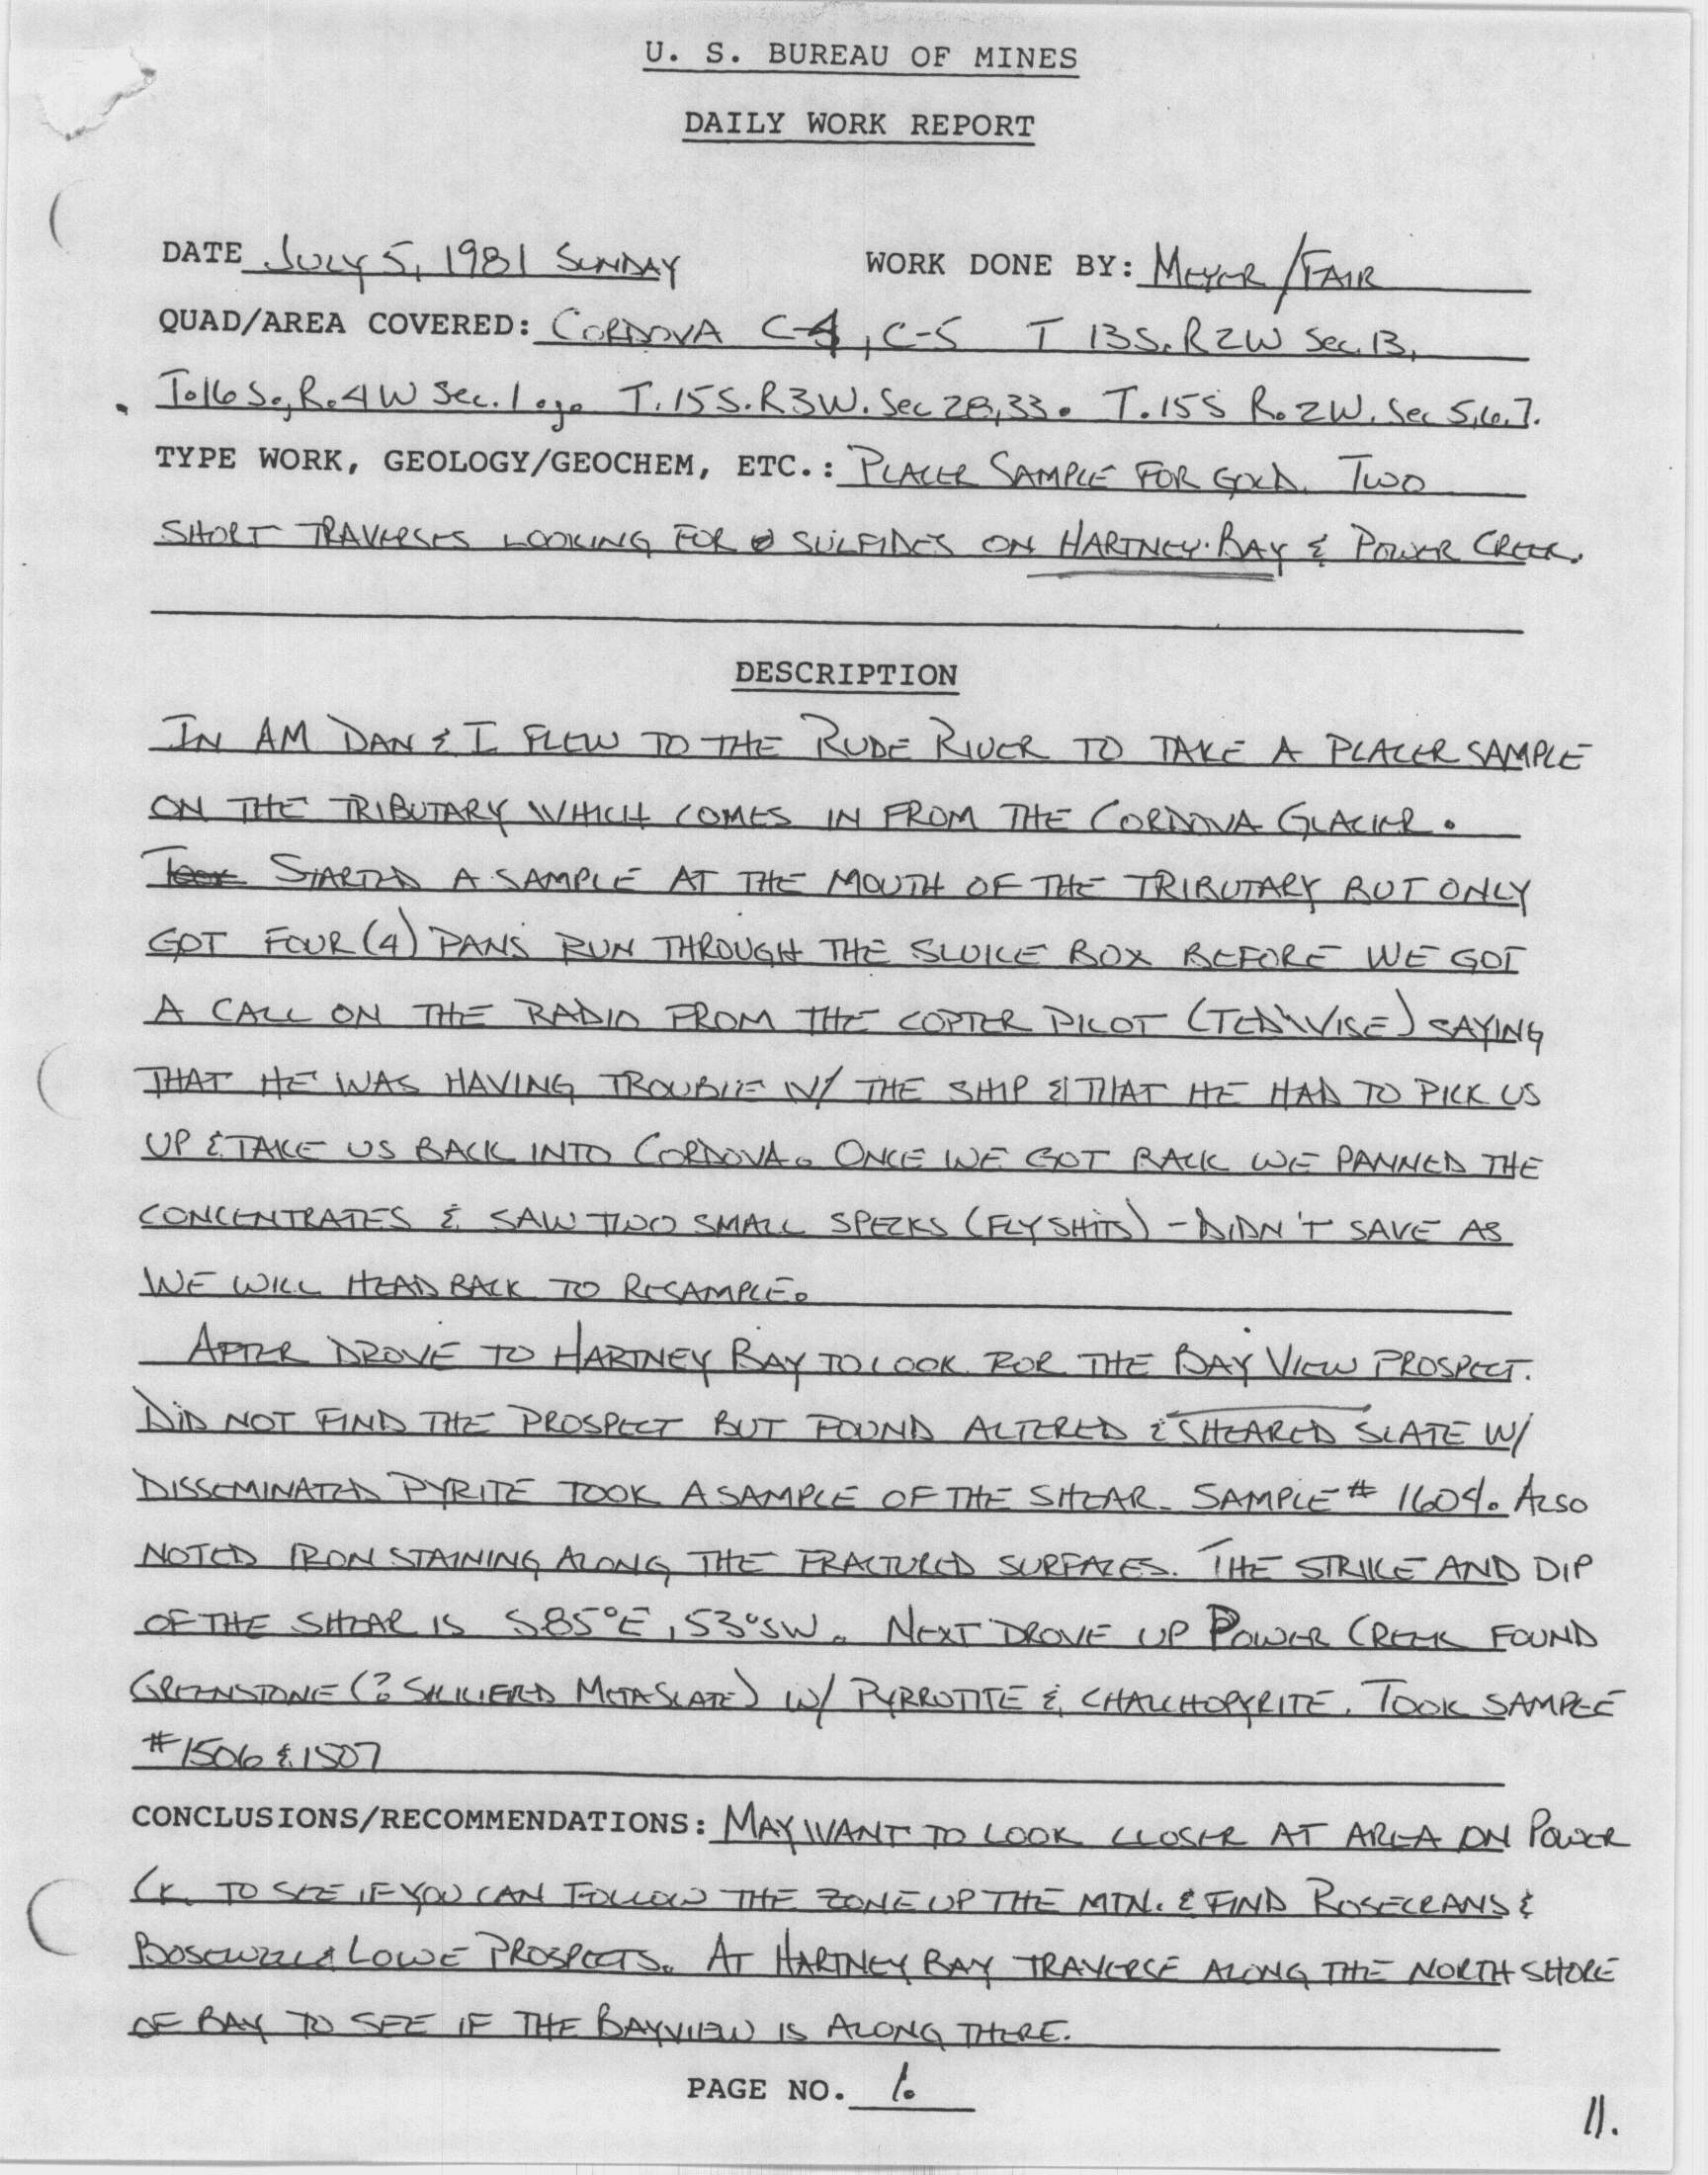 U. S. BUREAU OF MINES
DAILY WORK REPORT
DATE JULY 5, 1981 SUNDAY WORK DONE BY: MEYER/FAIR
QUAD/AREA COVERED: CORDOVA C-4, C-5 T 13S. R2W Sec. 13,
T.16 S., R.4W Sec. 1 T. 15S. R3W. Sec 28,33. T.15S R.2W. Sec 5,6,7.
TYPE WORK, GEOLOGY/GEOCHEM, ETC.: PLACER SAMPLE FOR GOLD. TWO
SHORT TRAVERSES LOOKING FOR SULFIDES ON HARTNEY BAY & POWER CREEK.
DESCRIPTION
IN AM DAN & I FLEW TO THE RUDE RIVER TO TAKE A PLACER SAMPLE
ON THE TRIBUTARY WHICH COMES IN FROM THE CORDOVA GLACIER.
Took STARTED A SAMPLE AT THE MOUTH OF THE TRIBUTARY BUT ONLY
GOT FOUR (4) PANS RUN THROUGH THE SLUICE BOX BEFORE WE GOT
A CALL ON THE RADIO FROM THE COPTER PILOT (TED WISE) SAYING
THAT HE WAS HAVING TROUBLE W/ THE SHIP & THAT HE HAD TO PICK US
UP & TAKE US BACK INTO CORDOVA. ONCE WE GOT BACK WE PANNED THE
CONCENTRATES & SAW TWO SMALL SPECKS (FLYSHITS) - DIDN'T SAVE AS
WE WILL HEAD BACK TO RESAMPLE.
AFTER DROVE TO HARTNEY BAY TO LOOK FOR THE BAY VIEW PROSPECT.
DID NOT FIND THE PROSPECT BUT FOUND ALTERED & SHEARED SLATE W/
DISSEMINATED PYRITE TOOK A SAMPLE OF THE SHEAR. SAMPLE # 1604. ALSO
NOTED IRON STAINING ALONG THE FRACTURED SURFACES. THE STRIKE AND DIP
OF THE SHEAR IS S85°E, 53°SW. NEXT DROVE UP POWER CREEK FOUND
GREENSTONE (? SILICIFIED METASLATE) W/ PYRROTITE & CHALCHOPYRITE. TOOK SAMPLE
#1506 & 1507
CONCLUSIONS/RECOMMENDATIONS: MAY WANT TO LOOK CLOSER AT AREA ON POWER
CK. TO SEE IF YOU CAN FOLLOW THE ZONE UP THE MTN. & FIND ROSECRANS &
& LOWE PROSPECTS. AT HARTNEY BAY TRAVERSE ALONG THE NORTH SHORE
OF BAY TO SEE IF THE BAYVIEW IS ALONG THERE.
PAGE NO. 1.
11.